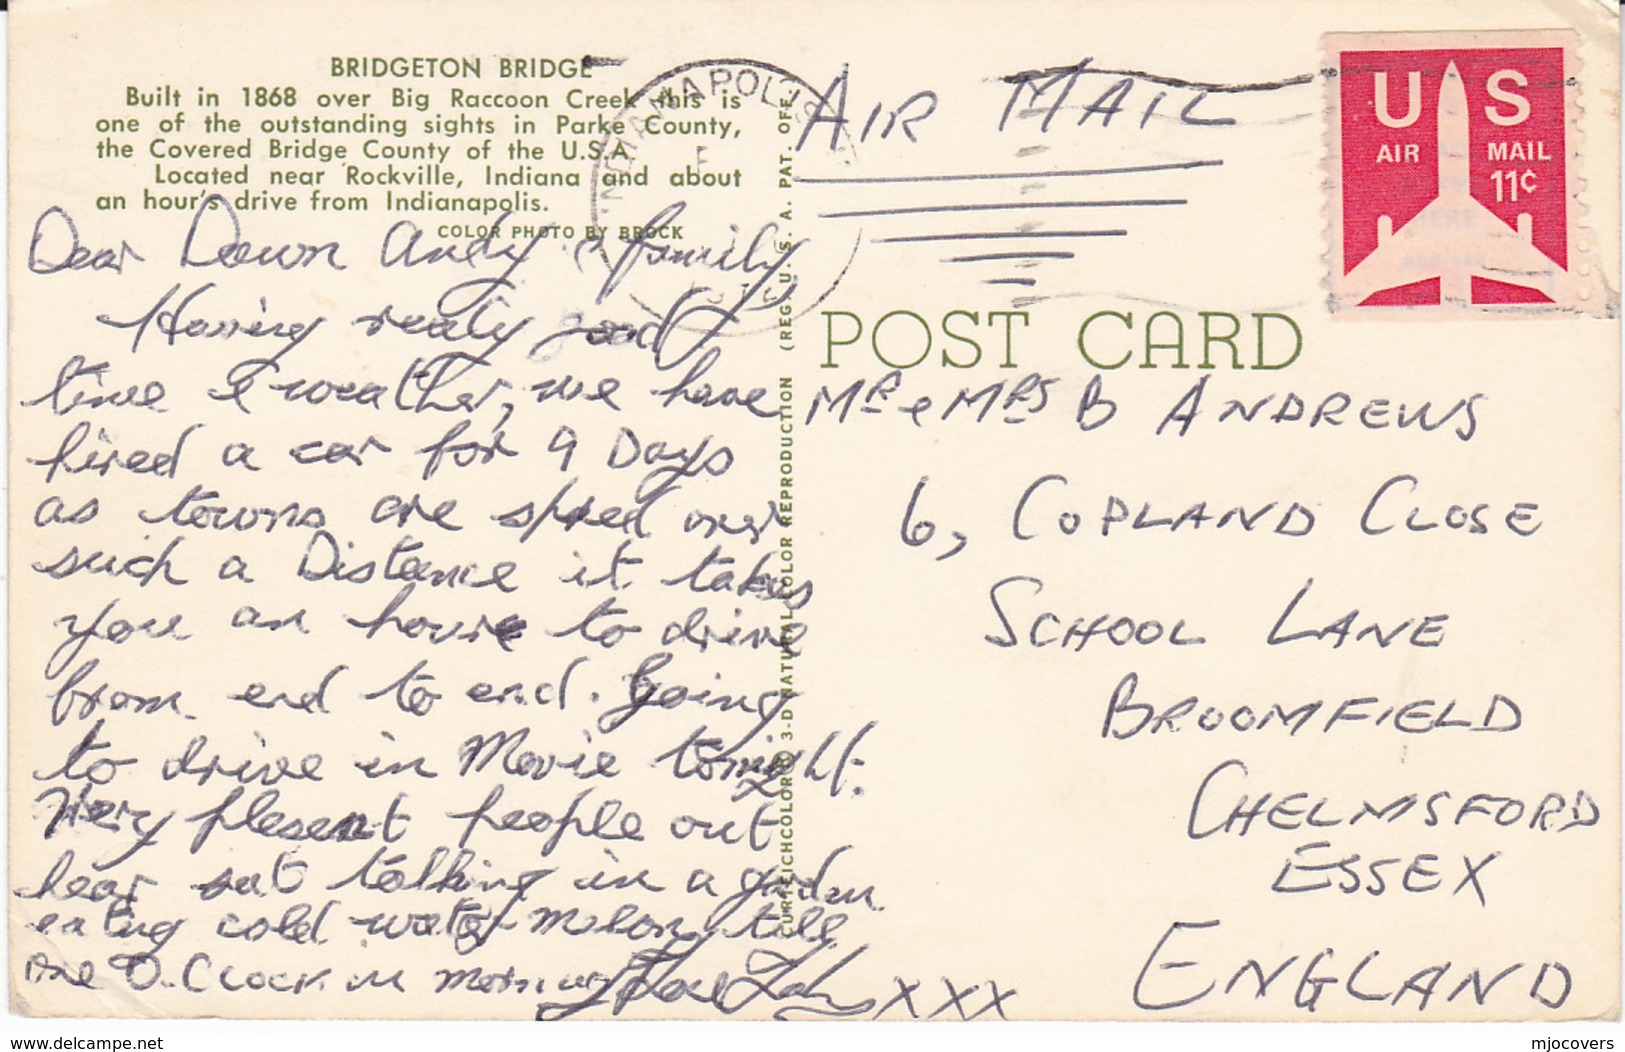 BRIDGETON BRIDGE
Built in 1868 over Big Raccoon Creek this is
one of the outstanding sights in Parke County,
the Covered Bridge County of the U.S.A.
Located near Rockville, Indiana and about
an hour's drive from Indianapolis.
COLOR PHOTO BY BROCK
Dear Dawn Andy & family
Having realy good
time & weather, we have
hired a car for 9 Days
as towns are spred over
such a Distance it takes
you an hour to drive
from end to end. Going
to drive in Movie tonight.
Very plesent people out
hear sat talking in a garden
eating cold water melon, till
one O.Clock in morning
Love
XXX
CURTEICHCOLOR® 3-D NATURAL COLOR REPRODUCTION (REG. U. S. A. PAT. OFF.)
INDIANAPOLIS
AIR MAIL
US
AIR MAIL
11¢
POST CARD
MR & MRS B ANDREWS
6, COPLAND CLOSE
SCHOOL LANE
BROOMFIELD
CHELMSFORD
ESSEX
ENGLAND
delcampe.net
mjocovers